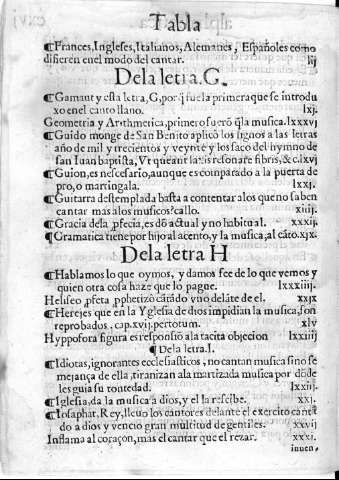 Tabla
¶Frances, Ingleses, Italianos, Alemanes, Españoles como
difieren enel modo del cantar. lij
De la letra. G.
¶Gamaut y esta letra, G, por q̃ fue la primera que se introdu
xo en el canto llano. lxj.
Geometria y Arithmetica, primero fuerõ q̃ la musica. lxxxvj
¶Guido monge de San Benito aplicò los signos a las letras
año de mil y trecientos y veynte y los saco del hymno de
san Iuan baptista, Vt queant laxis resonare fibris, &c. lxvj
¶Guion, es nescesario, aunque es comparado a la puerta de
pro, o martingala. lxxj.
¶Guitarra destemplada basta a contentar alos que no saben
cantar mas alos musicos? callo. xiiij.
¶Gracia dela, p̃fecia, es dõ actual y no habitual. xxxij.
¶Gramatica tiene por hijo al acento, y la musica, al cãto. xjx.
De la letra H
¶Hablamos lo que oymos, y damos fee de lo que vemos y
quien otra cosa haze que lo pague. lxxxiiij.
Heliseo, p̃feta, p̃phetizò cãtãdo vno delãte de el. xxjx
¶Herejes que en la Yglesia de dios impidian la musica, son
reprobados, cap. xvij. per totum. xlv
Hyppofora figura es responsiõ ala tacita objecion lxxiiij
¶De la letra. I.
¶Idiotas, ignorantes ecclesiasticos, no cantan musica sino se
mejança de ella, tiranizan ala martizada musica por dõde
les guia su tontedad. lxxiij.
¶Iglesia, da la musica a dios, y el la rescibe. xxj.
¶Iosaphat, Rey, lleuo los cantores delante el exercito cantã
do a dios y vencio gran multitud de gentiles. xxvij
Inflama al coraçon, mas el cantar que el rezar. xxxj.
inuen.